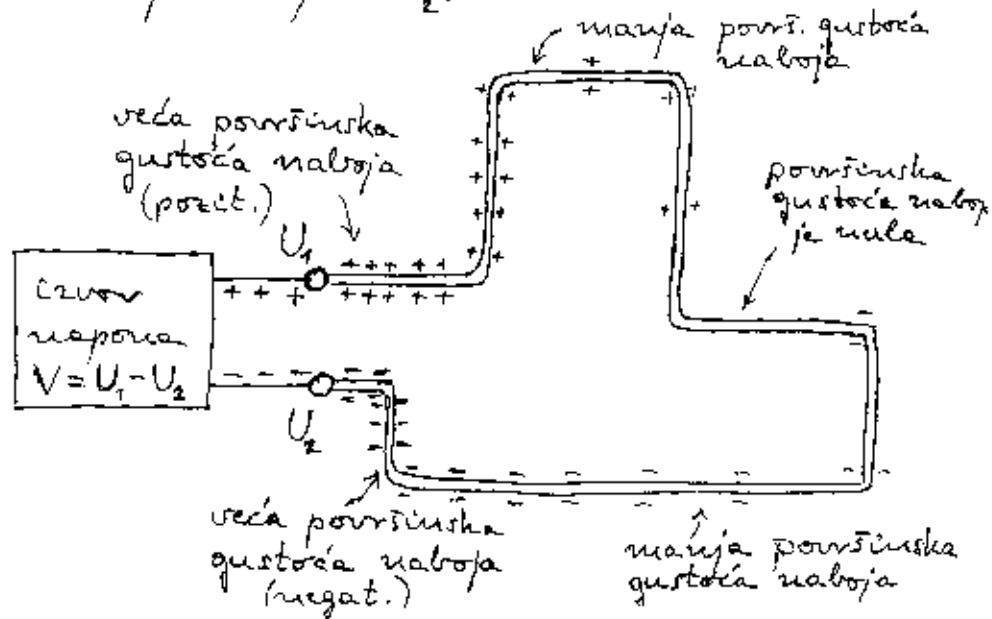 2.
manja površ. gustoća
naboja
veća površinska
gustoća naboja
(pozit.)
površinska
gustoća naboj
je nula
U₁
izvor
napona
V = U₁ - U₂
U₂
veća površinska
gustoća naboja
(negat.)
manja površinska
gustoća naboja